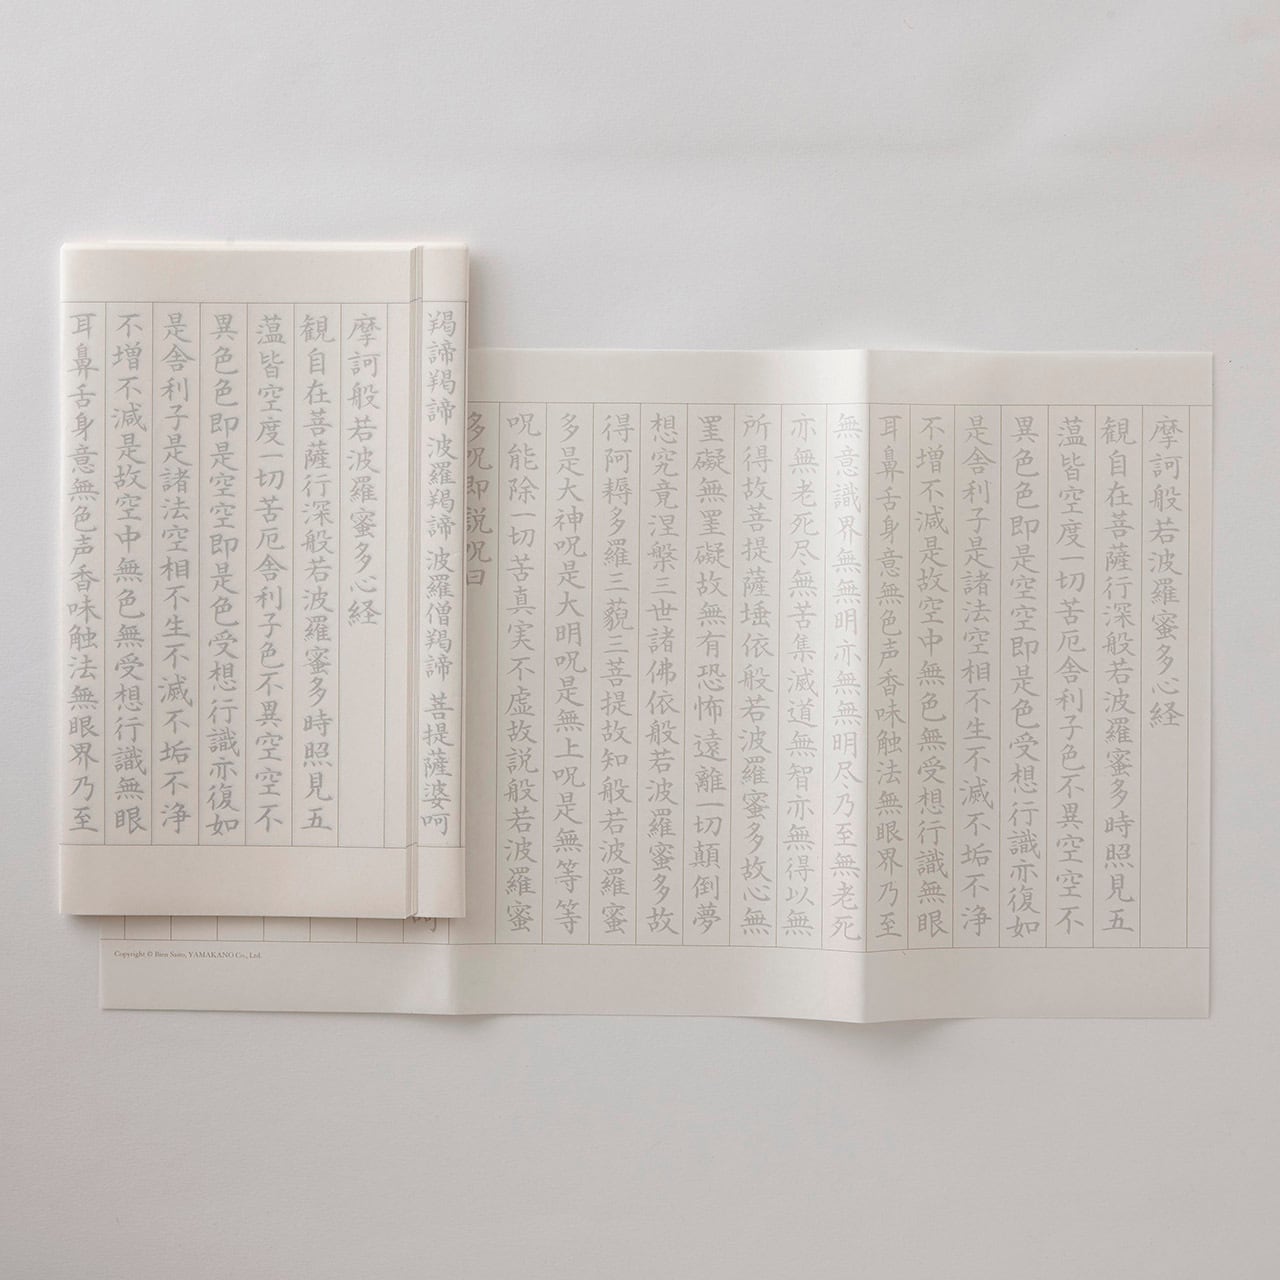 摩訶般若波羅蜜多心経
観自在菩薩行深般若波羅蜜多時照見五
薀皆空度一切苦厄舎利子色不異空空不
異色色即是空空即是色受想行識亦復如
是舎利子是諸法空相不生不滅不垢不浄
不増不減是故空中無色無受想行識無眼
耳鼻舌身意無色声香味触法無眼界乃至
無意識界無無明亦無無明尽乃至無老死
亦無老死尽無苦集滅道無智亦無得以無
所得故菩提薩埵依般若波羅蜜多故心無
罣礙無罣礙故無有恐怖遠離一切顛倒夢
想究竟涅槃三世諸佛依般若波羅蜜多故
得阿耨多羅三藐三菩提故知般若波羅蜜
多是大神呪是大明呪是無上呪是無等等
呪能除一切苦真実不虚故説般若波羅蜜
多呪即説呪曰
羯諦羯諦 波羅羯諦 波羅僧羯諦 菩提薩婆呵
摩訶般若波羅蜜多心経
観自在菩薩行深般若波羅蜜多時照見五
薀皆空度一切苦厄舎利子色不異空空不
異色色即是空空即是色受想行識亦復如
是舎利子是諸法空相不生不滅不垢不浄
不増不減是故空中無色無受想行識無眼
耳鼻舌身意無色声香味触法無眼界乃至
Copyright © Bien Saito, YAMAKANO Co., Ltd.